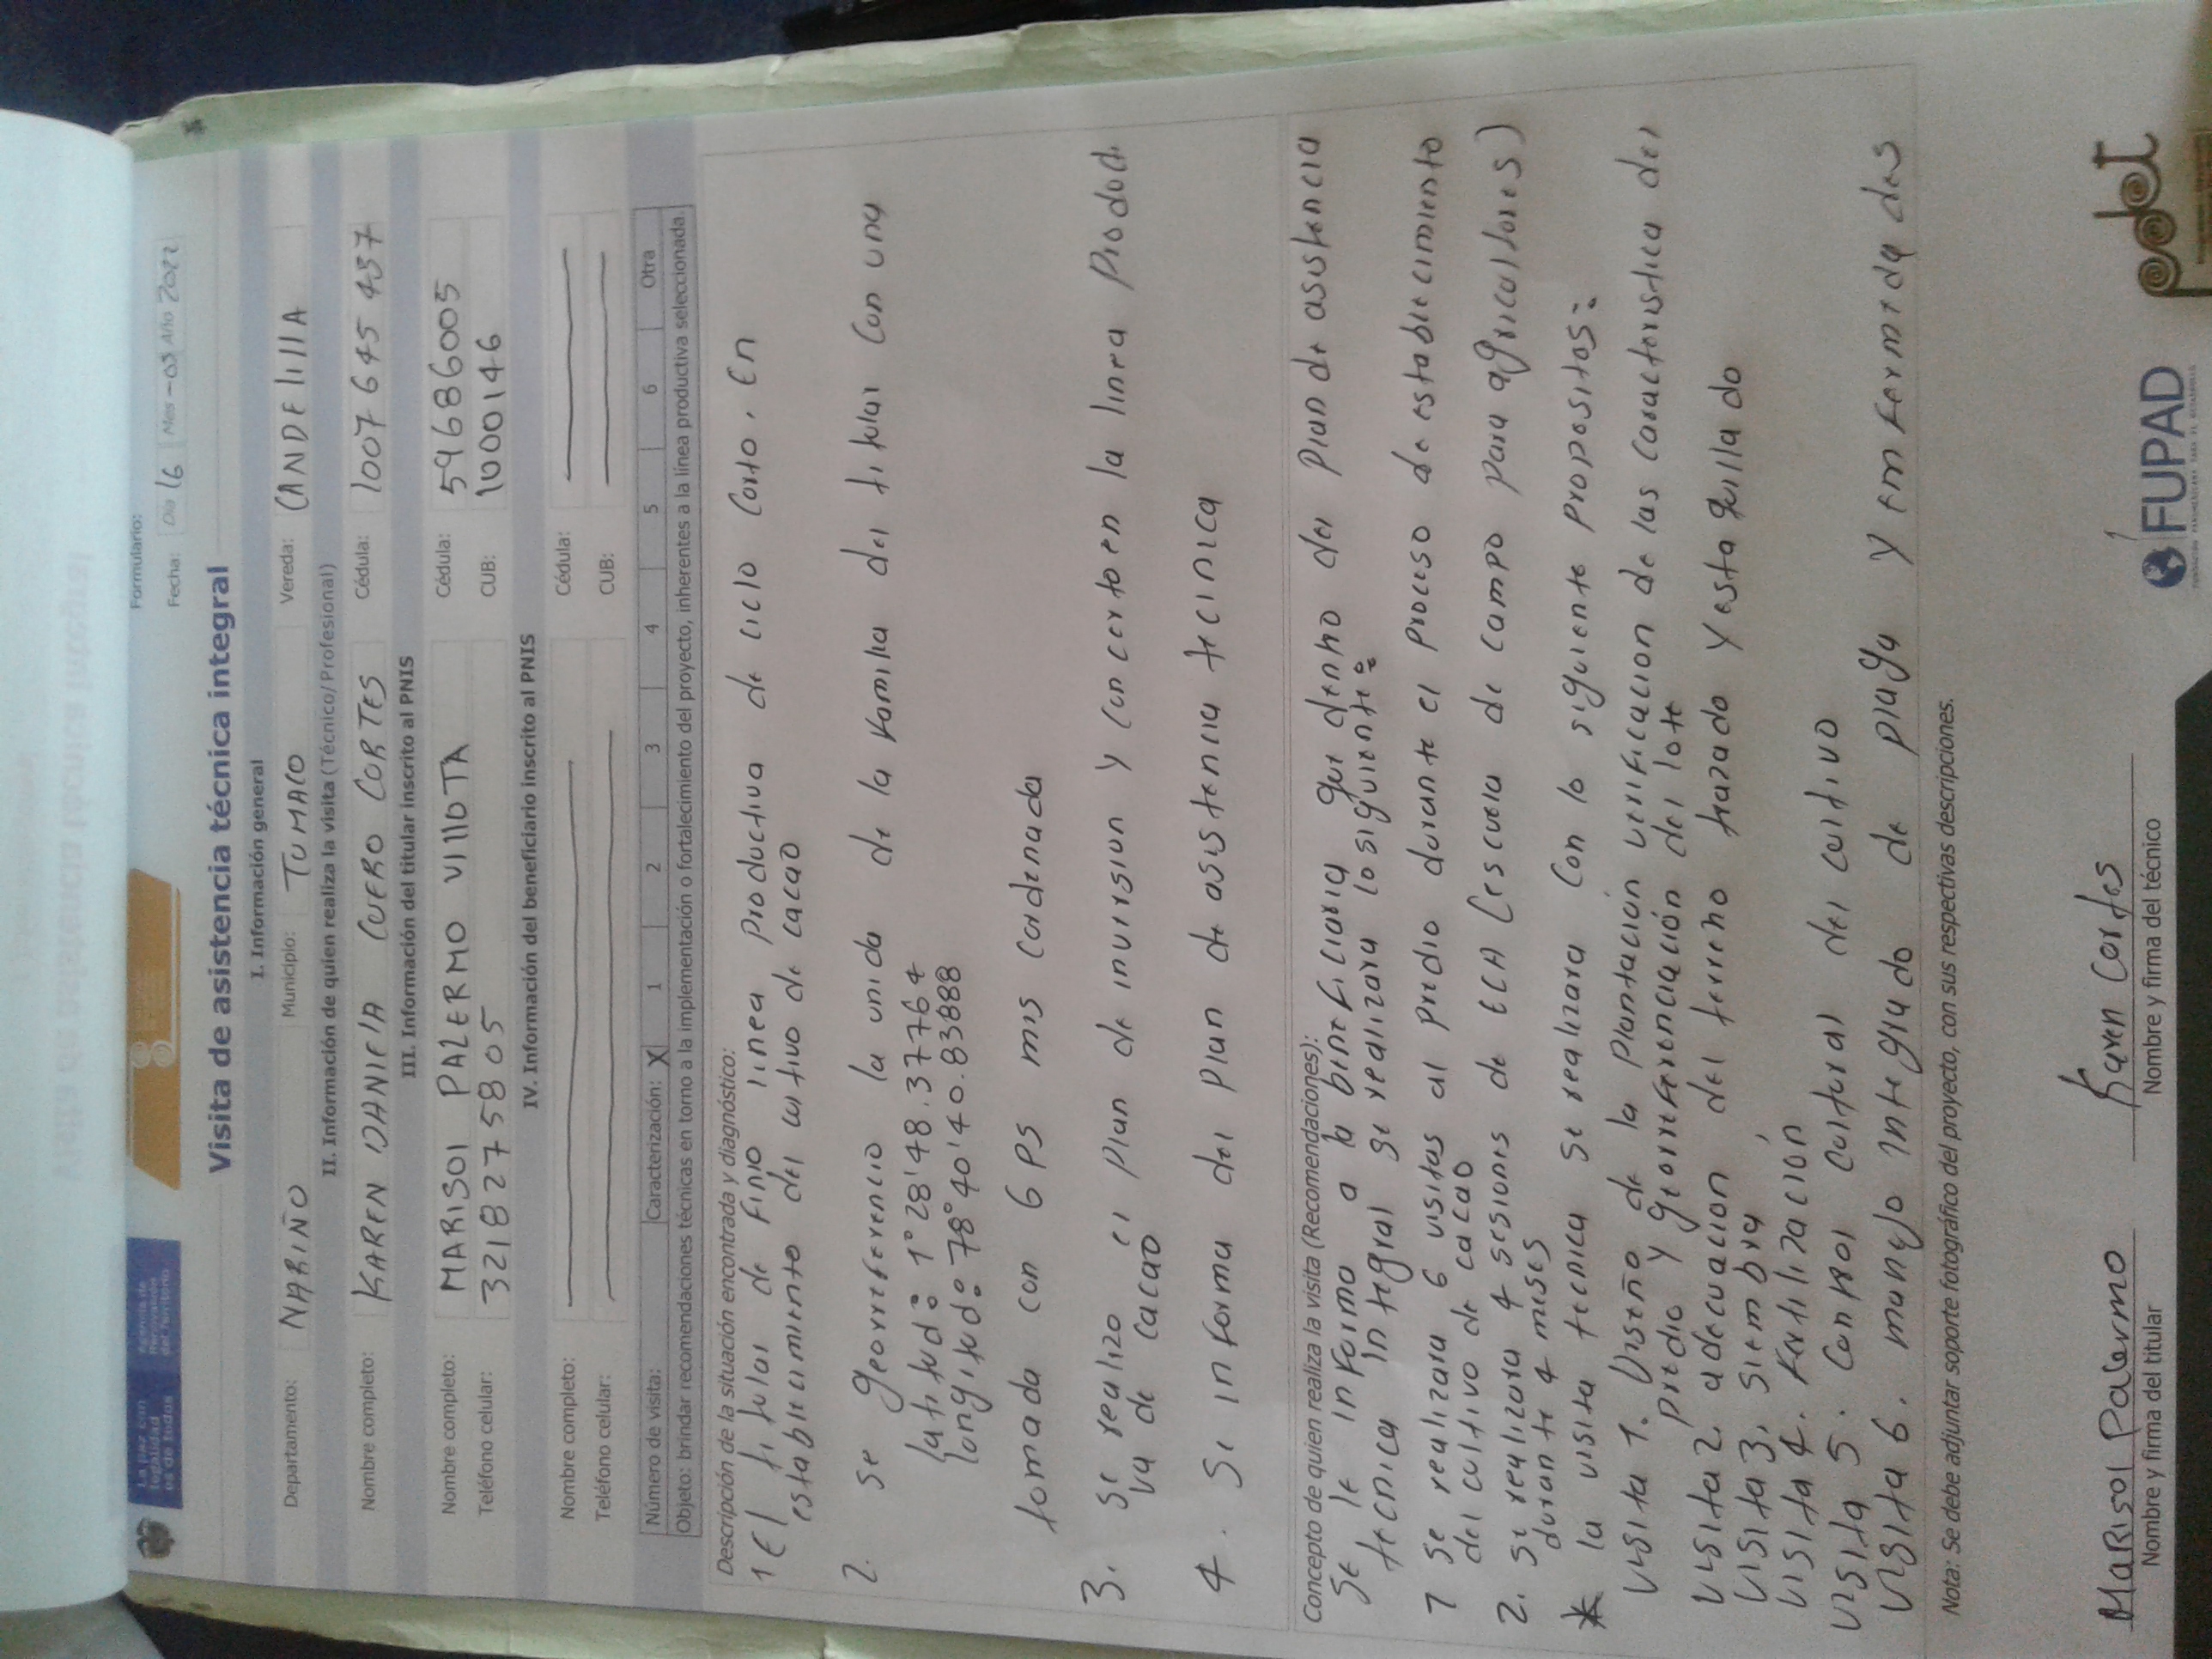 La paz con legalidad es de todos
Agencia de Renovación del Territorio
Formulario:
Fecha: Día 16 Mes-03 Año 2022
Visita de asistencia técnica integral
I. Información general
Departamento: NARIÑO Municipio: TUMACO Vereda: CANDElIllA
II. Información de quien realiza la visita (Técnico/Profesional)
Nombre completo: KAREN DANIElA CUERO CORTES Cédula: 1007 645 437
III. Información del titular inscrito al PNIS
Nombre completo: MARISOl PALERMO VIllOTA Cédula: 59686005
Teléfono celular: 3218275805 CUB: 1000146
IV. Información del beneficiario inscrito al PNIS
Nombre completo: Cédula:
Teléfono celular: CUB:
Número de visita: Caracterización: X 1 2 3 4 5 6 Otra
Objeto: brindar recomendaciones técnicas en torno a la implementación o fortalecimiento del proyecto, inherentes a la línea productiva seleccionada.
Descripción de la situación encontrada y diagnóstico:
1 El titular de finio linea productiva de ciclo corto. En
establecimiento del cultivo de cacao
2. se georreferencio la unida de la familia del titular con una
latitud: 1°28'48.37764
longitud: 78°40'40.83888
tomada con GPS mis cordenada
3. se realizo el plan de inversion y concerto en la linea producti
va de cacao
4. Se informa del plan de asistencia tecinica
Concepto de quien realiza la visita (Recomendaciones):
Se le informo a la beneficiaria que dentro del plan de asistencia
tecnica integral se realizara lo siguiente:
1 se realizara 6 visitas al predio durante el proceso de establecimiento
del cultivo de cacao
2. se realizara 4 sesiones de ECA (escuela de campo para agricultores)
durante 4 meses
* la visita tecnica se realizara con lo siguiente propositos:
visita 1. Diseño de la plantación verificacion de las caracteristica del
predio y georreferenciación del lote
visita 2. adecuacion del terreno trazado y estaquillado
visita 3. siembra,
visita 4. fertilizacion
visita 5. control cultural del cultivo
visita 6. manejo integrado de plaga y emfermedades
Nota: Se debe adjuntar soporte fotográfico del proyecto, con sus respectivas descripciones.
MaRisol Palermo
Nombre y firma del titular
Karen Cortes
Nombre y firma del técnico
FUPAD
FUNDACIÓN PANAMERICANA PARA EL DESARROLLO
pdet